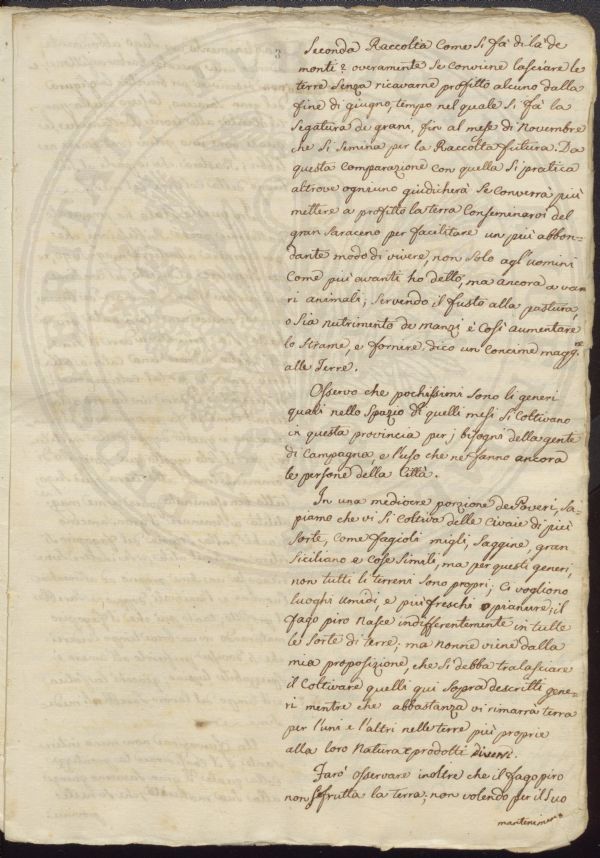 3
Seconda Raccolta come si fà di là de
monti? overamente se conviene lasciare le
terre senza ricavarne profitto alcuno dalla
fine di giugno, tempo nel quale si fà la
segatura de grani, fin al mese di Novembre
che si semina per la Raccolta futura. Da
questa comparazione con quella si pratica
altrove ogniuno giudicherà se converrà più
mettere a profitto la terra conseminarvi del
gran saraceno per facilitare un più abbon=
dante modo di vivere, non solo agl'uomini
come più avanti ho detto, ma ancora a va
ri animali; servendo il fusto alla pastura,
o sia nutrimento de manzi e così aumentare
lo strame, e fornire dico un concime magg.re
alle Terre.
Osservo che pochissimi sono li generi
quali nello spazio di quelli mesi si coltivano
in questa provincia per j bisogni della gente
di Campagna, e l'uso che ne fanno ancora
le persone della Città.
In una mediocre porzione de Poveri, sa=
piamo che vi si coltiva delle civaie di più
sorte, come fagioli migli, saggine, gran
siciliano e cose simili, ma per questi generi,
non tutti li terreni sono propri; ci vogliono
luoghi umidi, e più freschi o pianure; il
fago piro nasce indifferentemente in tutte
le sorte di terre; ma nonne viene dalla
mia proposizione, che si debba tralasciare
il coltivare quelli qui sopra descritti gene=
ri mentre che abbastanza vi rimarrà terra
per l'uni e l'altri nelle terre più proprie
alla loro natura e prodotti diversi.
Farò osservare inoltre che il fago piro
non sfrutta la terra, non volendo per il suo